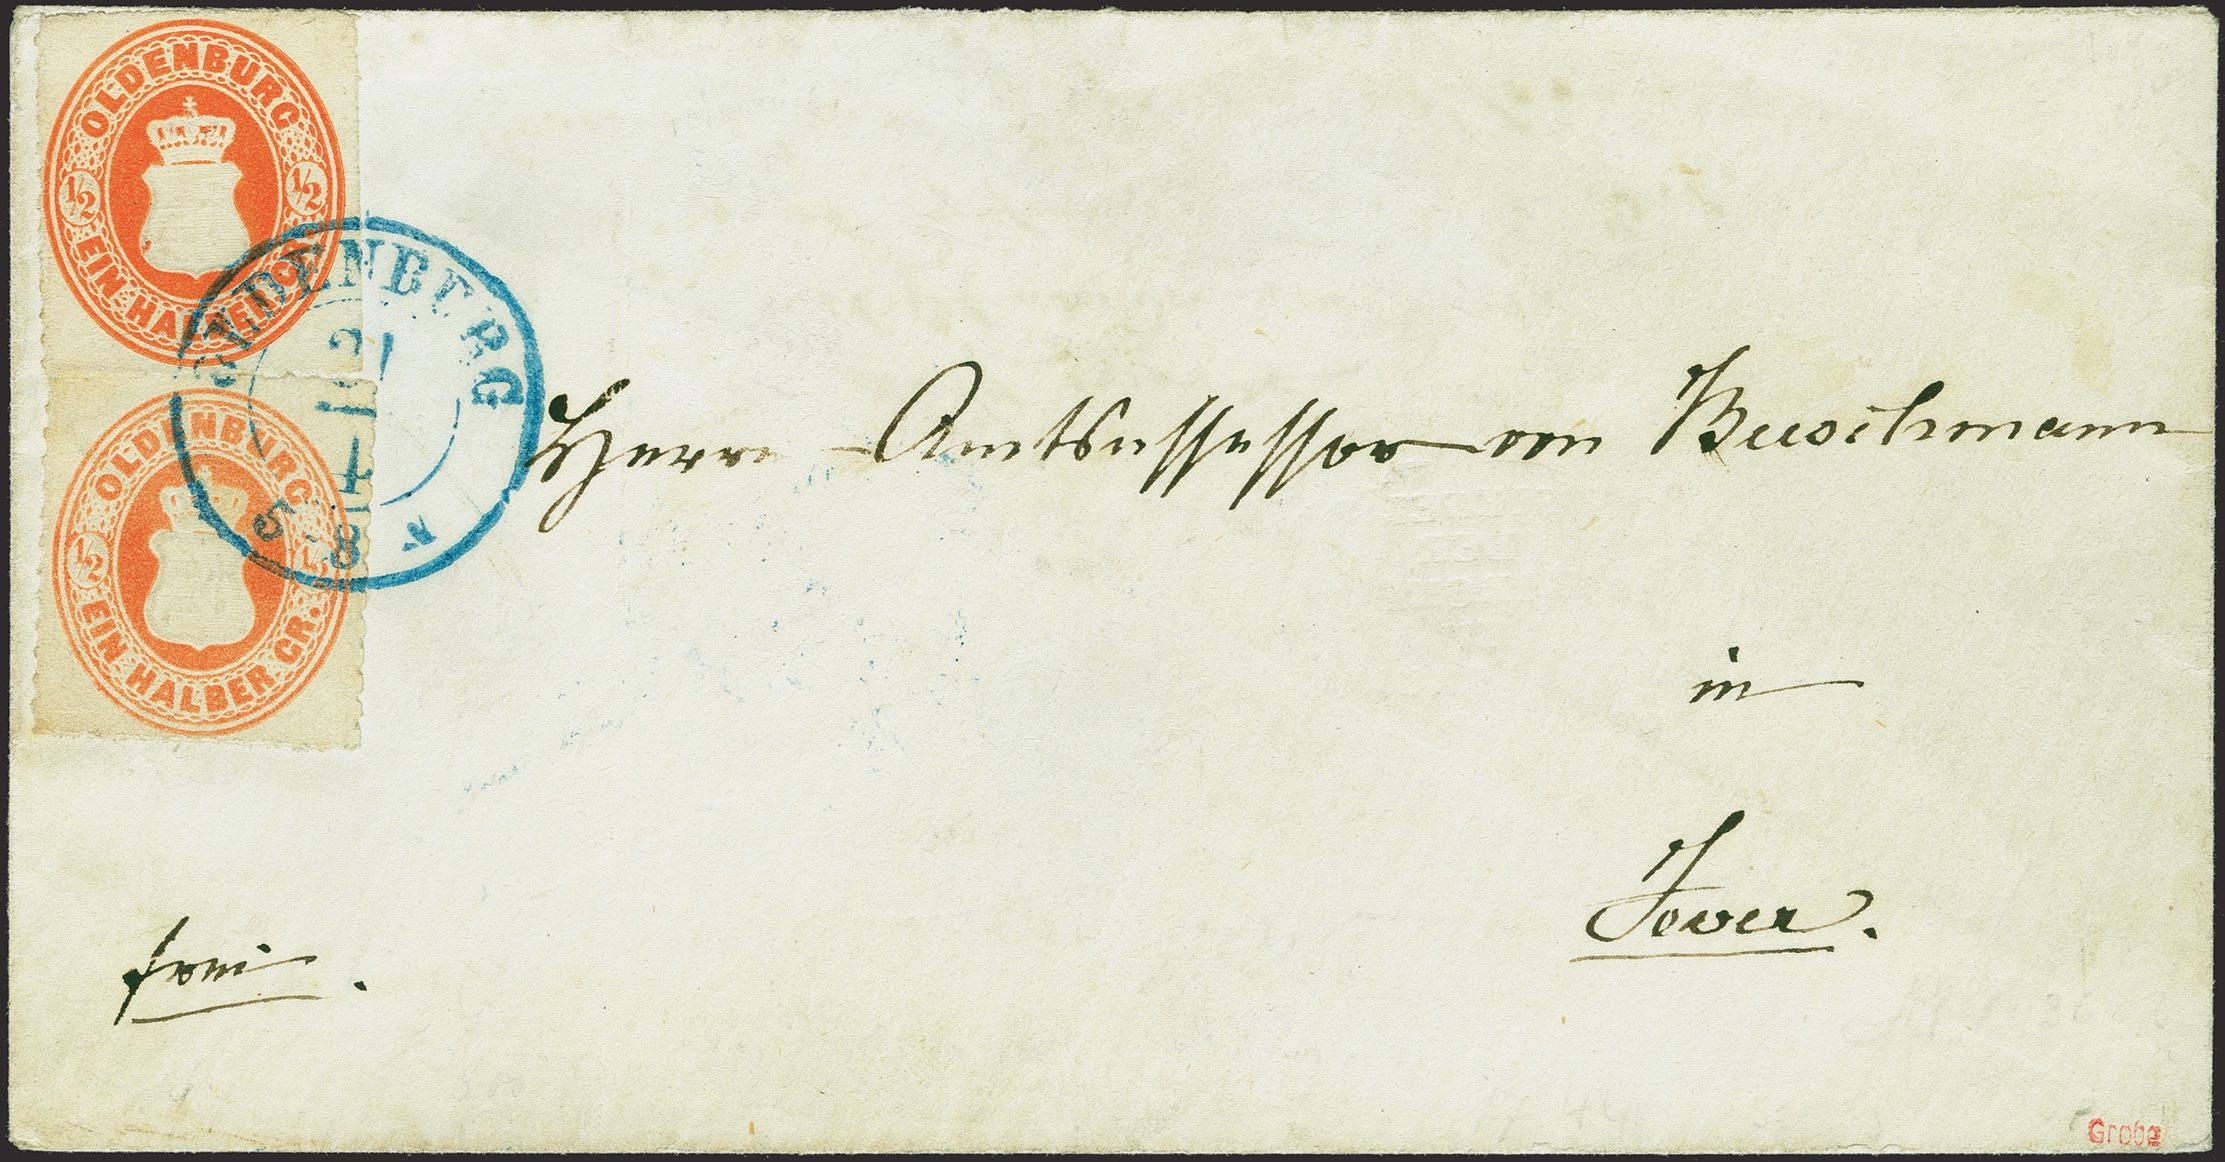 OLDENBURG
1/2 1/2
EIN HALBER GR.
OLDENBURG
21
4
5 - 8 N
OLDENBURG
1/2 1/2
EIN HALBER GR.
Herrn Amtsassessor von Buschmann
in
Jever.
frei.
Grobe